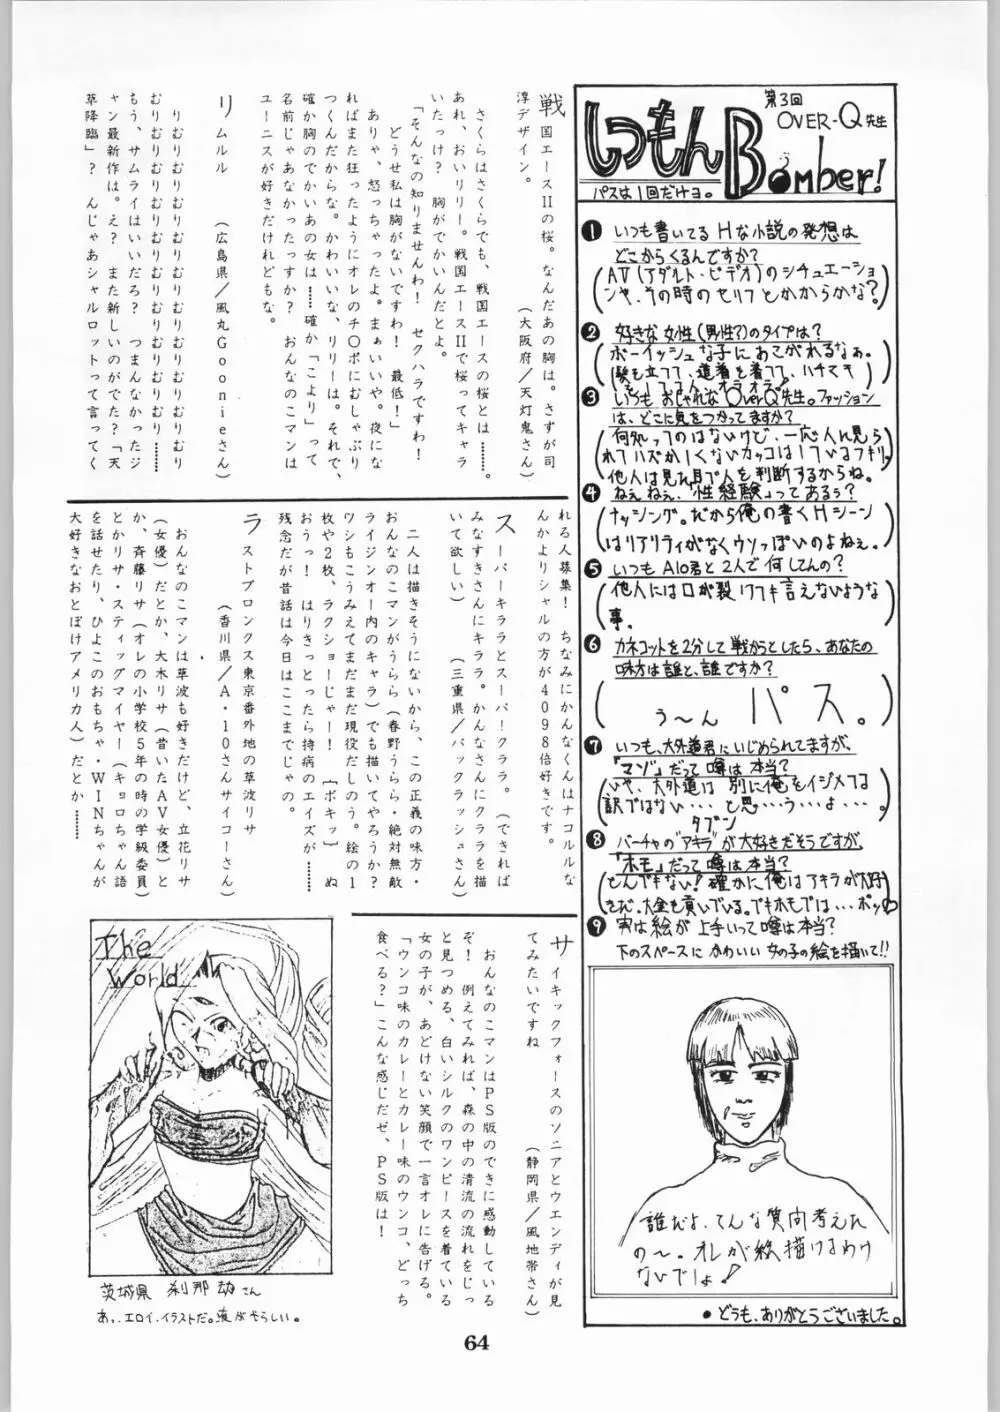 第3回
OVER-Q先生
しつもんBomber!
パスは1回だけヨ。
❶ いつも書いてるHな小説の発想は
どこからくるんですか?
(AV(アダルト・ビデオ)のシチュエーショ
ンや、その時のセリフとかからかな?)
❷ 好きな女性(男性?)のタイプは?
(ボーイッシュな子にあこがれるなぁ。
髪を立てて、道着を着てて、ハチマキ
❸ いつもおしゃれなOverQ先生。ファッション
は、どこに気をつかってますか?
(何知ってのはないけど、一応人に見ら
れてハズかしくないカッコはしているつもり。
他人は見た目で人を判断するからね。
❹ ねぇねぇ、「性経験」ってあるぅ?
(ナッシング。だから俺の書くHシーン
はリアリティがなくウソっぽいのよねぇ。)
❺ いつもAlo君と2人で何してんの?
(他人には口が裂けても言えないような
事。)
❻ カネコットを2分して戦かうとしたら、あなたの
味方は誰と、誰ですか?
(う〜ん パス。)
❼ いつも、大外道君にいじめられてますが、
「マゾ」だって噂は本当?
(いや、大外道は別に俺をイジメてる
訳ではない…と思…う…よ…。
タブン
❽ バーチャの"アキラ"が大好きだそうですが、
「ホモ」だって噂は本当?
(とんでもない!確かに俺はアキラが大好
きだ。大金も貢いでいる。でもホモでは…ポッ
❾ 実は絵が上手いって噂は本当?
下のスペースにかわいい女の子の絵を描いて!!
誰だよ、こんな質問考えた
の〜。オレが絵描けるわけ
ないでしょ!
●どうも、ありがとうございました。
戦国エースⅡの桜。なんだあの胸は。さすが司
淳デザイン。
(大阪府/天灯鬼さん)
さくらはさくらでも、戦国エースの桜とは……。
あれ、おいリリー。戦国エースⅡで桜ってキャラ
いたっけ? 胸がでかいんだとよ。
「そんなの知りませんわ! セクハラですわ!
どうせ私は胸がないですわ! 最低!」
ありゃ、怒っちゃったよ。まぁいいや。夜にな
ればまた狂ったようにオレのチ〇ポにむしゃぶり
つくんだからな。かわいいな、リリーは。それで、
確か胸のでかいあの女は……確か「こより」って
名前じゃあなかったっすか? おんなのこマンは
ユーニスが好きだけれどもな。
リムルル (広島県/風丸Goonieさん)
りむりむりむりむりむりむりむりむりむりむり
むりむりむりむりむりむりむりむりむり……
もう、サムライはいいだろ? つまんなかったジ
ャン最新作は。え? また新しいのがでた?「天
草降臨」? んじゃあシャルロットって言ってく
れる人募集! ちなみにかんなくんはナコルルな
んかよりシャルの方が4098倍好きです。
スーパーキララとスーパークララ。(できれば
みなすきさんにキララ。かんなさんにクララを描
いて欲しい) (三重県/バックラッシュさん)
二人は描きそうにないから、この正義の味方・
おんなのこマンがうらら(春野うらら・絶対無敵
ライジンオー内のキャラ)でも描いてやろうか?
ワシもこうみえてまだまだ現役だしのう。絵の1
枚や2枚、ラクショーじゃー! [ボキッ] ぬ
おうっ! はりきっとったら持病のエイズが……
残念だが昔話は今日はここまでじゃの。
ラストブロンクス東京番外地の草波リサ
(香川県/A・10さんサイコーさん)
おんなのこマンは草波も好きだけど、立花リサ
(女優)だとか、大木リサ(昔いたAV女優)と
か、斉藤リサ(オレの小学校5年の時の学級委員)
とかリサ・スティッグマイヤー(キョロちゃん語
を話せたり、ひよこのおもちゃ・WINちゃんが
大好きなおとぼけアメリカ人)だとか……
サイキックフォースのソニアとウエンディが見
てみたいですね
(静岡県/風地帯さん)
おんなのこマンはPS版のできに感動している
ぞ! 例えてみれば、森の中の清流の流れをじっ
と見つめる、白いシルクのワンピースを着ている
女の子が、あどけない笑顔で一言オレに告げる。
「ウンコ味のカレーとカレー味のウンコ、どっち
食べる?」こんな感じだゼ、PS版は!
The
World
茨城県 刹那劫さん
あ、エロイ、イラストだ。涙がすらしい。
64